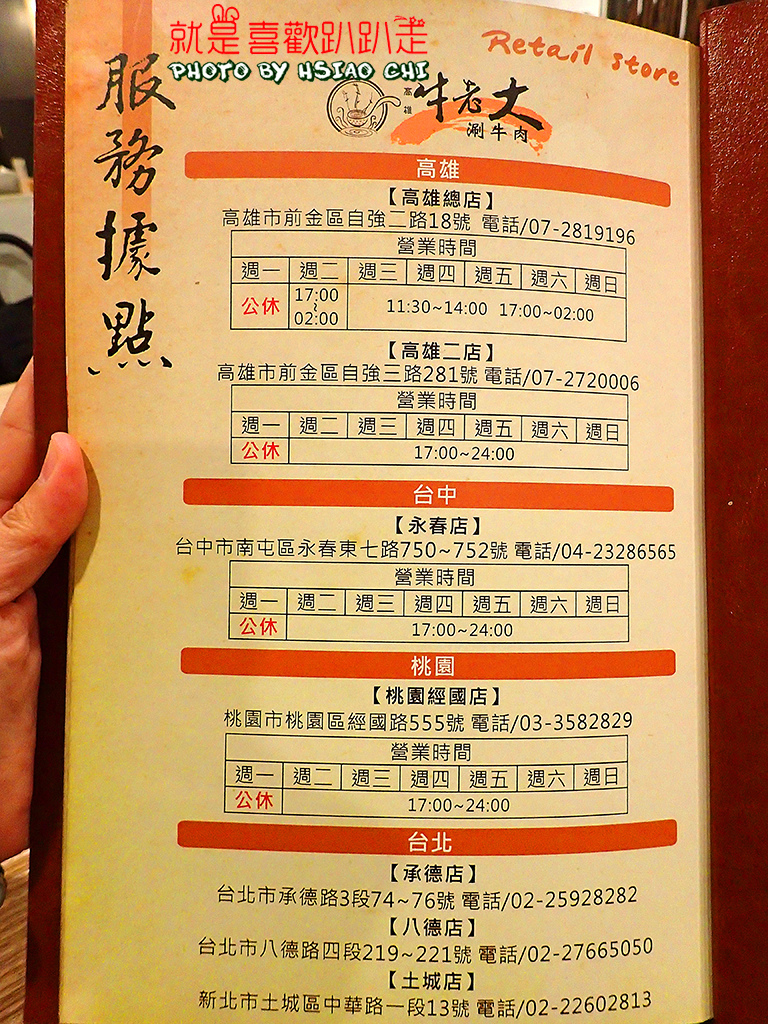 就是喜歡趴趴走
PHOTO BY HSIAO CHI
Retail store
服務據點
高雄
牛老大
涮牛肉
高雄
【高雄總店】
高雄市前金區自強二路18號 電話/07-2819196
營業時間
週一 週二 週三 週四 週五 週六 週日
公休 17:00~02:00 11:30~14:00 17:00~02:00
【高雄二店】
高雄市前金區自強三路281號 電話/07-2720006
營業時間
週一 週二 週三 週四 週五 週六 週日
公休 17:00~24:00
台中
【永春店】
台中市南屯區永春東七路750~752號 電話/04-23286565
營業時間
週一 週二 週三 週四 週五 週六 週日
公休 17:00~24:00
桃園
【桃園經國店】
桃園市桃園區經國路555號 電話/03-3582829
營業時間
週一 週二 週三 週四 週五 週六 週日
公休 17:00~24:00
台北
【承德店】
台北市承德路3段74~76號 電話/02-25928282
【八德店】
台北市八德路四段219~221號 電話/02-27665050
【土城店】
新北市土城區中華路一段13號 電話/02-22602813